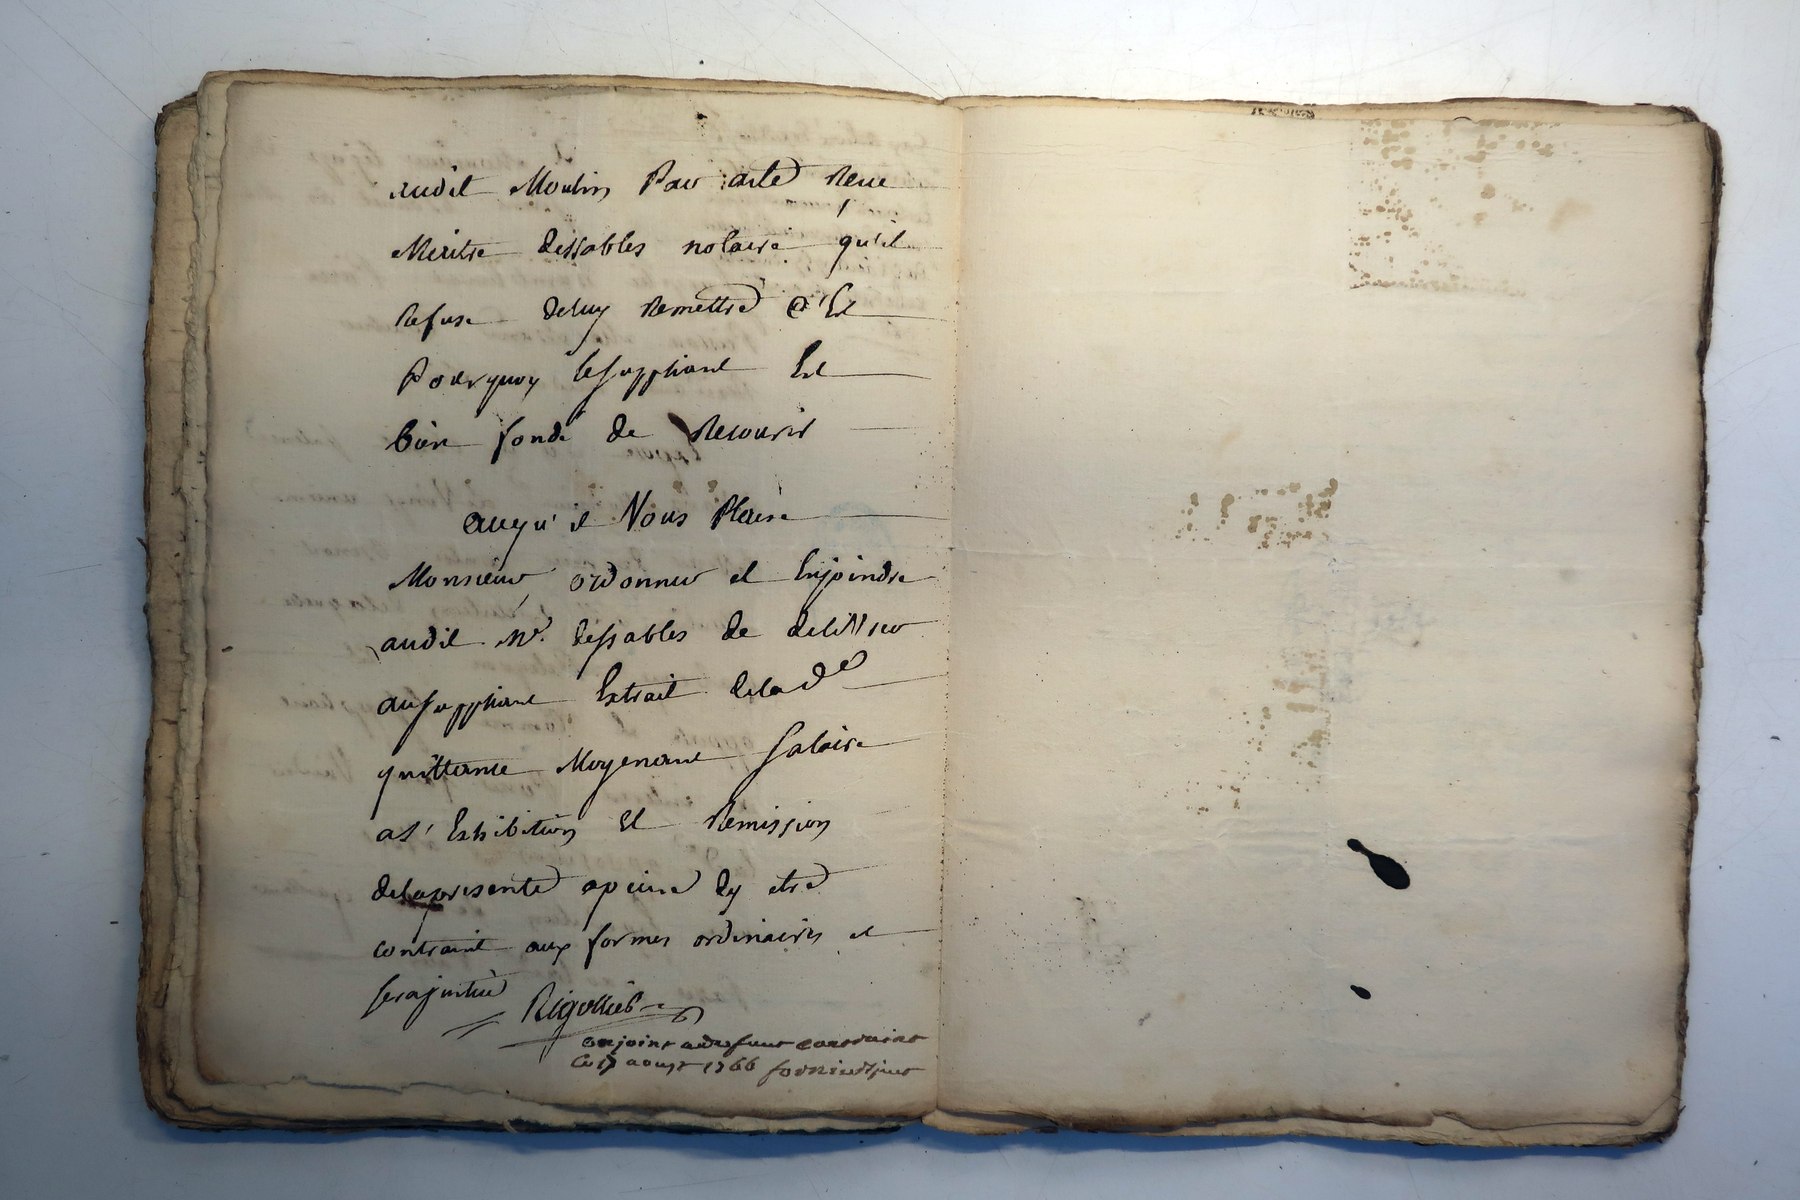 audit Moulin Par acte Reçu
Meittre dessables notaire qu'il
Refuse deluy Remettre C'Est
Pourquoy lesuppliant Est
bien fondé de Recourir
acequ'il Vous Plaise
Monsieur, ordonner et Enjoindre
audit Mr. dessables de delivrer
ausuppliant Extrait delad.e
quittance Moyenant Salaire
a l'Exhibition Et Remission
delapresente apeine dy etre
contraint aux formes ordinaires et
serajustice Rigollier
enjoint aurefusant contraint
Ce 17 aoust 1766